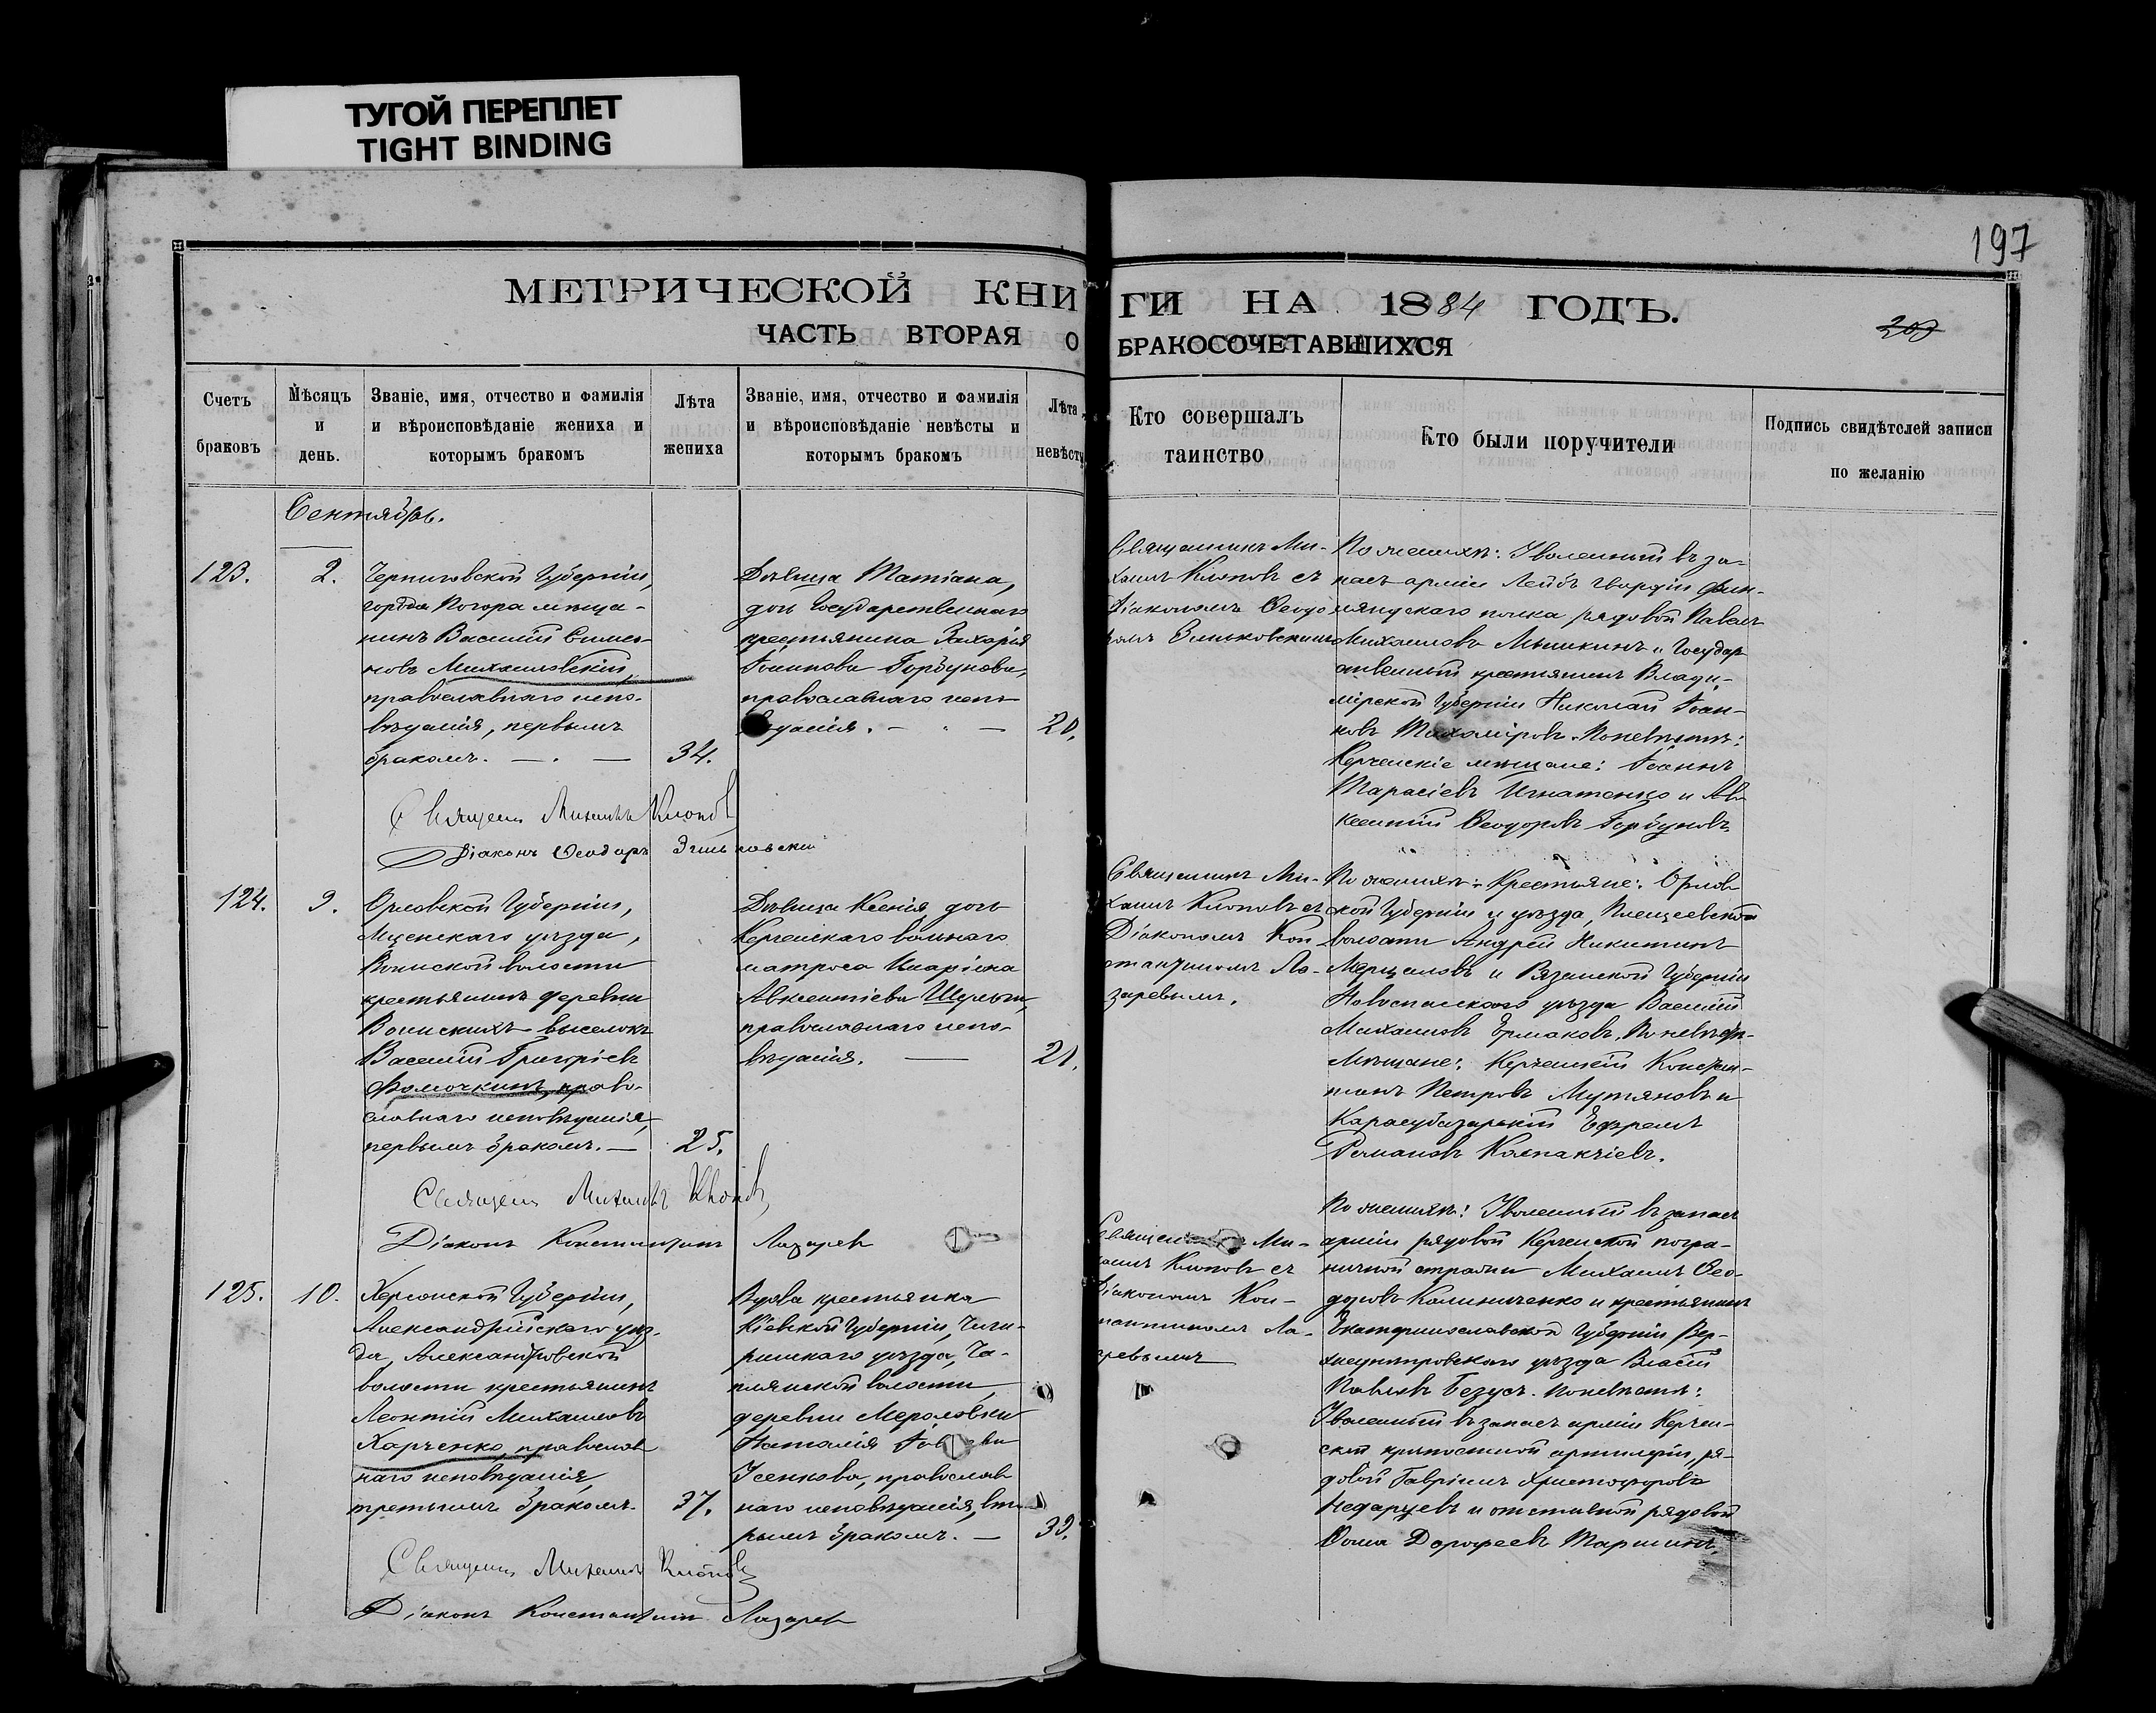 ТУГОЙ ПЕРЕПЛЕТ
TIGHT BINDING
197
МЕТРИЧЕСКОЙ КНИГИ НА 1884 ГОДЪ.
ЧАСТЬ ВТОРАЯ О БРАКОСОЧЕТАВШИХСЯ
203
Счетъ браковъ
Мѣсяцъ и день.
Званіе, имя, отчество и фамилія
и вѣроисповѣданіе жениха и
которымъ бракомъ
Лѣта жениха
Званіе, имя, отчество и фамилія
и вѣроисповѣданіе невѣсты и
которымъ бракомъ
Лѣта невѣсты
Кто совершалъ
таинство
Кто были поручители
Подпись свидѣтелей записи
по желанію
Сентябрь.
123.
2.
Черниговской Губерніи,
города Погора мѣща-
нинъ Василій Симео-
новъ Михайловскій,
православнаго испо-
вѣданія, первымъ
бракомъ.
34.
Дѣвица Татіана,
дочь Государственнаго
крестьянина Захарія
Іоаннова Горбунова,
православнаго испо-
вѣданія.
20.
Священникъ Ми-
хаилъ Клоповъ съ
Діакономъ Ѳеодо
ромъ
По женихѣ: Уволенный въ за-
пасъ арміи Лейбъ Гвардіи Фин-
ляндскаго полка рядовой Павелъ
Михаиловъ Мышкинъ и Государ
ственный крестьянинъ Влади-
мірской Губерніи Николай Іоан-
новъ Тихоміровъ. По невѣстѣ:
Керченскіе мѣщане: Іоаннъ
Тарасіевъ Игнатенко и Ав
ксентій Ѳеодоровъ Горбуновъ.
Священ. Михаилъ Клоповъ
Діаконъ Ѳеодоръ
124.
9.
Орловской Губерніи,
Мценскаго уѣзда,
Воинской волости
крестьянинъ деревни
Воинскихъ выселокъ
Василій Григоріевъ
Фомочкинъ, право-
славнаго исповѣданія,
первымъ бракомъ.
25.
Дѣвица Ксенія, дочь
Керченскаго вольнаго
матроса Иларіона
Авксентіева
православнаго испо-
вѣданія.
21.
Священникъ Ми-
хаилъ Клоповъ съ
Діакономъ Кон
стантиномъ Ла-
заревымъ.
По женихѣ: Крестьяне: Орлов
ской Губерніи и уѣзда, Плещеевской
волости Андрей Никитинъ
Мерцаловъ и Рязанской Губерніи
уѣзда Василій
Михаиловъ Ермаковъ. По невѣстѣ
Мѣщане: Керченскій Констан-
тинъ Петровъ Мутьяновъ и
Карасубазарскій Ефремъ
Романовъ Колпакчіевъ.
Священ. Михаилъ Клоповъ
Діаконъ Константинъ Лазаревъ
125.
10.
Херсонской Губерніи,
Александрійскаго уѣз-
да, Александровской
волости крестьянинъ
Леонтій Михаиловъ
Харченко, православ
наго исповѣданія,
третьимъ бракомъ.
37.
Вдова крестьянка
Кіевской Губерніи, Чиги-
ринскаго уѣзда, Ча-
плинской волости,
деревни
Наталія
Усенкова, православ
наго исповѣданія, вто
рымъ бракомъ.
39.
Священникъ Ми-
хаилъ Клоповъ съ
Діакономъ Кон-
стантиномъ Ла-
заревымъ
По женихѣ: Уволенный въ запасъ
арміи рядовой Керченской погра-
ничной стражи Михаилъ Ѳео-
доровъ Калиниченко и крестьянинъ
Екатеринославской Губерніи Вер-
хнеднѣпровскаго уѣзда Власій
Павловъ Безусъ. По невѣстѣ:
Уволенный въ запасъ арміи Керчен-
ской крѣпостной артилеріи, ря-
довой Гавріилъ Христофоровъ
и отставной рядовой
Ѳома Дорофеевъ
Священ. Михаилъ Клоповъ
Діаконъ Константинъ Лазаревъ